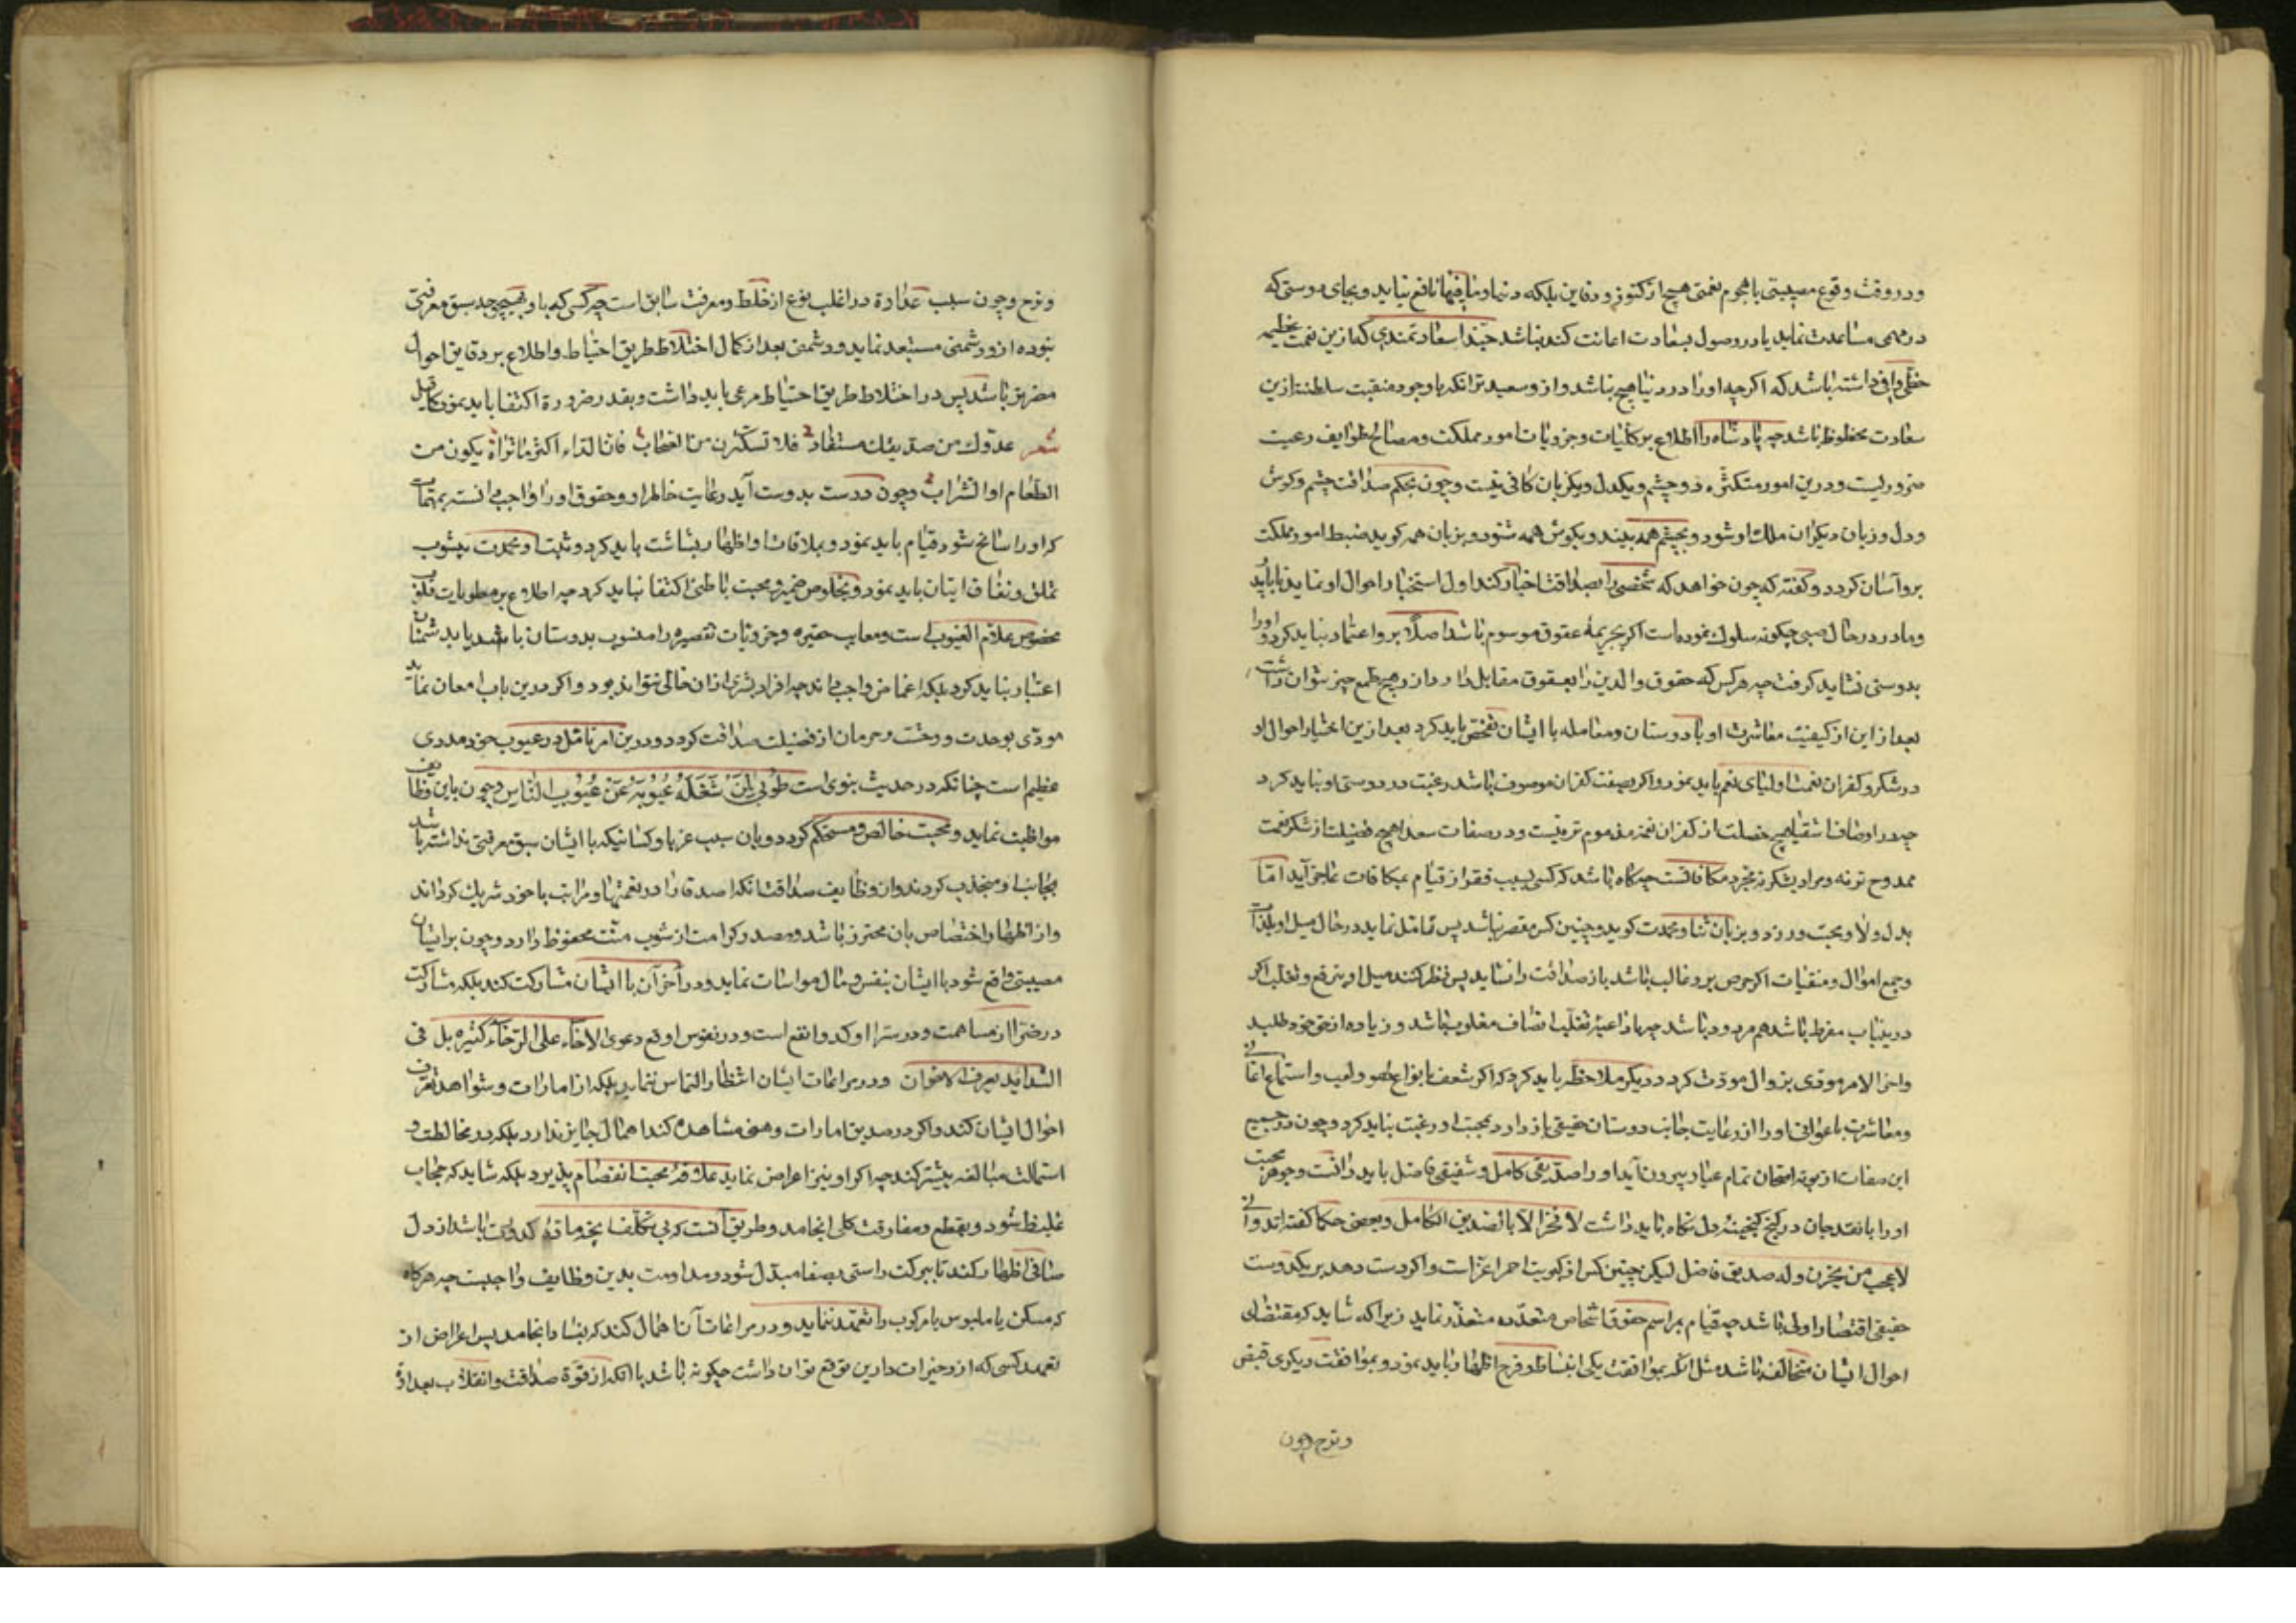 ودر وقت وقوع مصیبتی یا هجوم نعمتی هیچ از کنوز و دفاین بلکه دنیا و ما فیها نافع نیاید و بجای دوستی که
در مهمی مساعدت نماید یا در وصول بسعادت اعانت کند نباشد حبّذا سعادتمندی که ازین نعمت عظیمه
حظّی وافی داشته باشد که اگرچه او را در دنیا هیچ نباشد و ازو سعیدتر آنکه با وجود منقبت سلطنت ازین
سعادت محظوظ باشد چه پادشاه را اطلاع بر کلیات و جزویات امور مملکت و مصالح طوایف رعیت
ضروریست و درین امور متکثره دو چشم و یکدل و یکزبان کافی نیست و چون بحکم صداقت چشم و گوش
و دل و زبان دیگران ملک او شود و بچشم همه بیند و بگوش همه شنود و بزبان همه گوید ضبط امور مملکت
برو آسان گردد و گفته که چون خواهد که شخصی را بصداقت اختیار کند اول استخبار احوال او نماید تا با پدر
و مادر در حال صبی چگونه سلوک نموده است اگر بجریمهٔ عقوق موسوم باشد اصلا برو اعتماد نباید کرد و او را
بدوستی نشاید گرفت چه هر کس که حقوق والدین را بعقوق مقابل دارد ازو هیچ طمع خیر نتوان داشت
بعد از این از کیفیت معاشرت او با دوستان و معامله با ایشان تفحص باید کرد بعد ازین اختیار احوال او
در شکر و کفران نعمت اولیای نعم باید نمود و اگر بصفت کفران موصوف باشد رغبت در دوستی او نباید کرد
چه در اوصاف اشقیا هیچ خصلت از کفران نعمت مذموم‌تر نیست و در صفات سعدا هیچ فضیلت از شکر نعمت
ممدوح‌تر نه و مراد بشکر نه مجرد مکافاتست چه گاه باشد که کسی بسبب فقر از قیام بمکافات عاجز آید امّا
بدل ولا و محبت ورزد و بزبان ثنا و محمدت گوید و چنین کس مقصر نباشد پس تأمل نماید در حال میل او بلذات
و جمع اموال و مقتنیات اگر حرص برو غالب باشد باز صداقت را نشاید پس نظر کنند میل او بترفع و تغلب اگر
درینباب مفرط باشد هم مردود باشد چه با داعیهٔ تغلب انصاف مغلوب باشد و زیاده از حق خود طلبد
و آخر الامر مودی بزوال مودّت گردد دیگر ملاحظه باید کرد که اگر شعف بانواع لهو و لعب و استماع اغانی
و معاشرت باغوانی او را از رعایت جانب دوستان حقیقی باز دارد بمحبت او رغبت نباید کرد و چون در جمیع
این صفات از بوتهٔ امتحان تمام عیار بیرون آید او را صدیقی کامل و شفیقی فاضل باید دانست و جوهر محبت
او را با نقد جان در گنج گنجینهٔ دل نگاه باید داشت لا فخر الا بالصدیق الکامل و بعضی حکما گفته‌اند وانی
لاعجب من یحزن وله صدیق فاضل لیکن چنین کس از کبریت احمر اعزّ است و اگر دست دهد بر یکدوست
حقیقی اقتصار اولی باشد چه قیام بمراسم حقوق اشخاص متعدّده متعذّر نماید زیرا که شاید که مقتضای
احوال ایشان متخالف باشد مثل آنکه بموافقت یکی انبساط و فرح اظهار باید نمود و بموافقت دیگری قبض
وترح وچون
وترح و چون سبب عداوة در اغلب نوع از خلط و معرفت سابق است چه کسی که باو بهیچوجه سبق معرفتی
نبوده ازو دشمنی مستبعد نماید و دشمنی بعد از کمال اختلاط طریق احتیاط و اطلاع بر دقایق احوال
مضرتر باشد پس در اختلاط طریق احتیاط مرعی باید داشت و بقدر ضرورة اکتفا باید نمود کما قیل
شعر عدوّک من صدیقک مستفاد فلا تستکثرن من الصحاب فانّ الداء اکثر ما تراه یکون من
الطعام او الشراب و چون دوست بدوست آید رعایت خاطر او و حقوق او را واجب دانسته بمهمات
که او را سانح شود قیام باید نمود و بملاقات او اظهار بشاشت باید کرد و ثنا و محمدت بی‌شوب
تملق و نفاق ایشان باید نمود و بخلوص ضمیر و محبت باطنی اکتفا نباید کرد چه اطلاع بر مطویات قلوب
مخصوص علام الغیوب است و معایب حقیره و جزویات تقصیره را منسوب بدوستان باشد باید شمنان
اعتبار نباید کرد بلکه اغماض واجب داند چه افراد بشری ازان خالی نتواند بود و اگر درین باب امعان نماید
مودّی بوحدت و وحشت و حرمان از فضیلت صداقت گردد و درین امر تأمل در عیوب خود مددی
عظیم است چنانکه در حدیث نبوی است طُوبی لِمَنْ شَغَلَهُ عُیُوبُهُ عَنْ عُیُوبِ النّاس و چون باین وظایف
مواظبت نماید و محبت خالص و مستحکم گردد و بان سبب غربا و کسانیکه با ایشان سبق معرفتی نداشته باشد
بجانب او منجذب گردند و از وظایف صداقت آنکه اصدقا را در نعمتها و مراتب با خود شریک گرداند
و از اظهار اختصاص بان محترز باشد و مصدر کرامت از شوب منت محفوظ دارد و چون بر ایشان
مصیبتی واقع شود با ایشان بنفس و مال مواسات نماید و در آخر آن با ایشان مشارکت کند بلکه مشارکت
در ضرّا از مساهمت و در سرّا اوکد و انفع است و در نفوس اوقع دعوی الاخاء علی الرخاء کثیره بل فی
الشداید یعرف الاخوان و در مراعات ایشان انتظار التماس ننماید بلکه از امارات و شواهد تعرف
احوال ایشان کند و اگر در صدیق امارات وهنی مشاهده کند اهمال جایز ندارد بلکه در مخالطت و
استمالت مبالغه بیشتر کند چه اگر او نیز اعراض نماید علاقهٔ محبت انفصام پذیرد بلکه شاید که حجاب
غلیظ شود و بقطع و مفارقت کلی انجامد و طریق آنست که بی تکلف آنچه مادهٔ کدورت باشد از دل
صافی اظهار کند تا ببرکت راستی بصفا مبدّل شود و مداومت بدین وظایف واجبست چه هرگاه
که مسکن یا ملبوس یا مرکوب را تعهد ننماید و در مراعات آن اهمال کند که بفساد انجامد پس اعراض از
تعهد کسی که ازو خیرات دارین توقع توان داشت چگونه باشد با آنکه از قوّة صداقت و انقلاب بعداوة